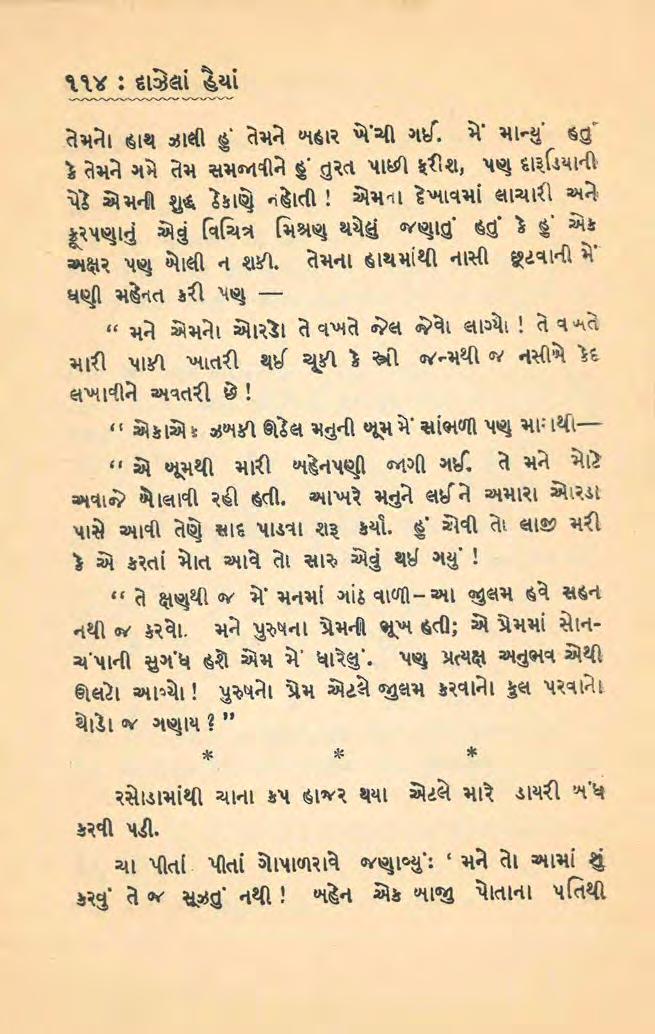 ૧૧૪ : દાઝેલાં હૈયાં
તેમનો હાથ ઝાલી હું તેમને બહાર ખેંચી ગઈ. મેં માન્યું હતું
કે તેમને ગમે તેમ સમજાવીને હું તુરત પાછી ફરીશ, પણ દારૂડિયાની
પેઠે એમની શુદ્ધ ઠેકાણે નહોતી ! એમના દેખાવમાં લાચારી અને
ક્રૂરપણાનું એવું વિચિત્ર મિશ્રણ થયેલું જણાતું હતું કે હું એક
અક્ષર પણ બોલી ન શકી. તેમના હાથમાંથી નાસી છૂટવાની મેં
ઘણી મહેનત કરી પણ —
“ મને એમનો ઓરડો તે વખતે જેલ જેવો લાગ્યો ! તે વખતે
મારી પાકી ખાતરી થઈ ચૂકી કે સ્ત્રી જન્મથી જ નસીબે કેદ
લખાવીને અવતરી છે !
“ એકાએક ઝબકી ઊઠેલ મનુની બૂમ મેં સાંભળી પણ મારાથી—
“ એ બૂમથી મારી બહેનપણી જાગી ગઈ. તે મને મોટે
અવાજે બોલાવી રહી હતી. આખરે મનુને લઈને અમારા ઓરડા
પાસે આવી તેણે સાદ પાડવા શરૂ કર્યા. હું એવી તો લાજી મરી
કે એ કરતાં મોત આવે તો સારુ એવું થઈ ગયું !
“ તે ક્ષણથી જ મેં મનમાં ગાંઠ વાળી–આ જુલમ હવે સહન
નથી જ કરવો. મને પુરુષના પ્રેમની ભૂખ હતી; એ પ્રેમમાં સોન-
ચંપાની સુગંધ હશે એમ મેં ધારેલું. પણ પ્રત્યક્ષ અનુભવ એથી
ઊલટો આવ્યો ! પુરુષનો પ્રેમ એટલે જુલમ કરવાનો કુલ પરવાનો
થોડો જ ગણાય ? ”
* * *
રસોડામાંથી ચાના કપ હાજર થયા એટલે મારે ડાયરી બંધ
કરવી પડી.
ચા પીતાં પીતાં ગોપાળરાવે જણાવ્યું: ‘ મને તો આમાં શું
કરવું તે જ સૂઝતું નથી ! બહેન એક બાજુ પોતાના પતિથી